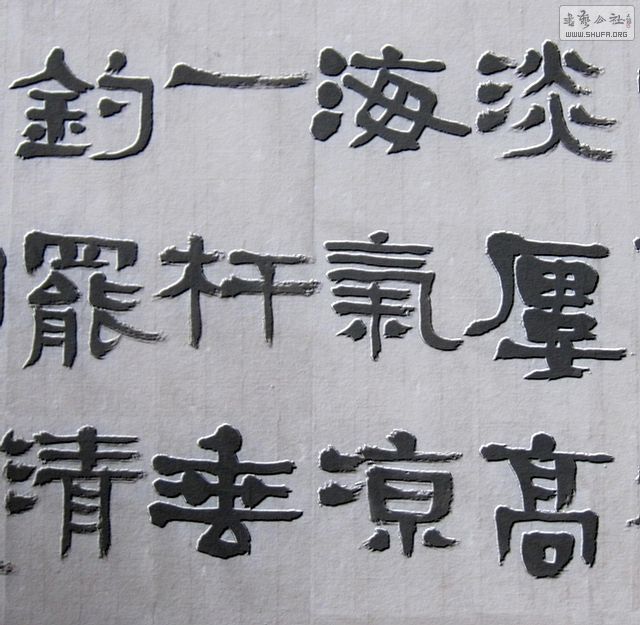 淡廔高
海氣涼
一杆垂
釣罷清
書藝公社
WWW.SHUFA.ORG